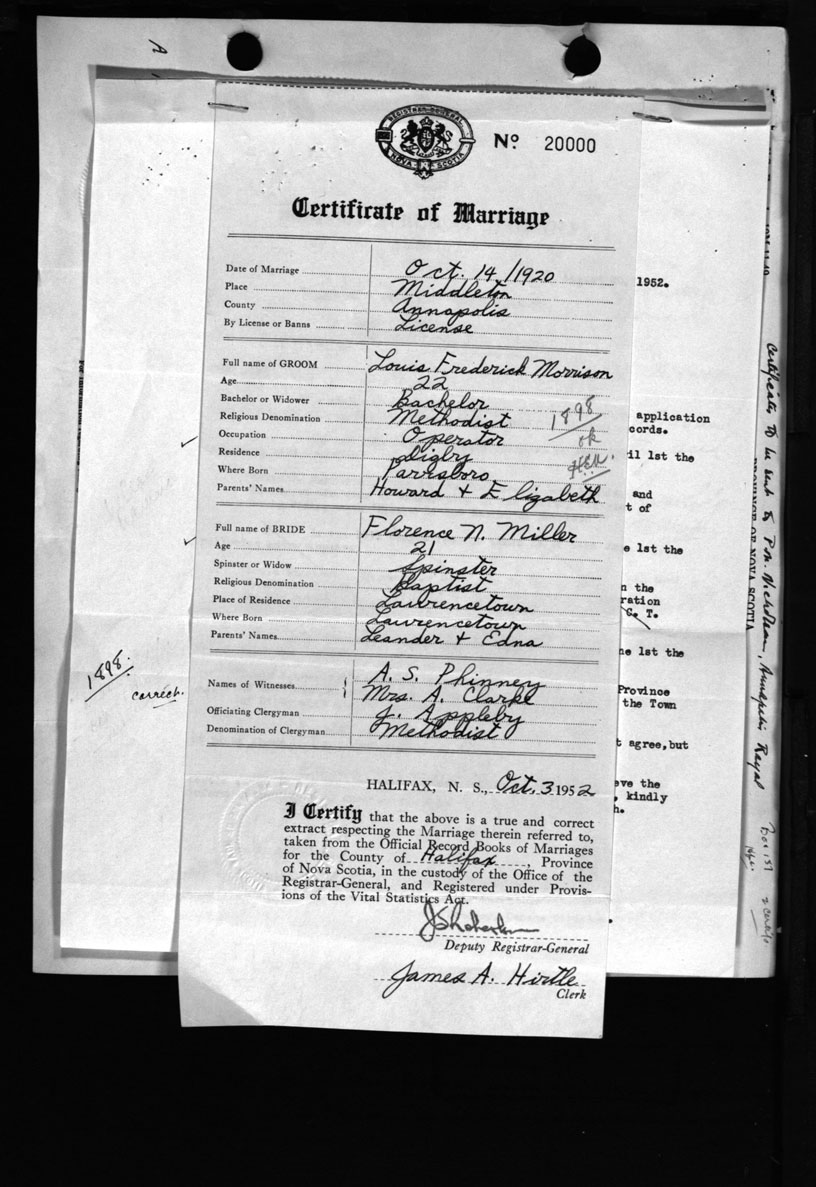 A
REGISTRAR-GENERAL
NOVA SCOTIA
No 20000
Certificate of Marriage
Date of Marriage Oct. 14/1920
Place Middleton
County Annapolis
By License or Banns License
Full name of GROOM Louis Frederick Morrison
Age 22
Bachelor or Widower Bachelor
Religious Denomination Methodist
Occupation Operator
Residence Digby
Where Born Parrsboro
Parents' Names Howard + Elizabeth
1898
ok
Full name of BRIDE Florence N. Miller
Age 21
Spinster or Widow Spinster
Religious Denomination Baptist
Place of Residence Lawrencetown
Where Born Lawrencetown
Parents' Names Leander + Edna
Names of Witnesses A. S. Phinney
Mrs. A. Clarke
Officiating Clergyman J. Appleby
Denomination of Clergyman Methodist
HALIFAX, N. S., Oct. 3 1952
I Certify that the above is a true and correct
extract respecting the Marriage therein referred to,
taken from the Official Record Books of Marriages
for the County of Halifax, Province
of Nova Scotia, in the custody of the Office of the
Registrar-General, and Registered under Provis-
ions of the Vital Statistics Act.
Deputy Registrar-General
James A. Hirtle
Clerk
1898.
correct.
1952.
application
cords.
il 1st the
and
t of
e 1st the
n the
ration
C. T.
ne 1st the
Province
the Town
t agree, but
eve the
, kindly
h.
PROVINCE OF NOVA SCOTIA
Certificate to be sent to P.M. Nicholson, Annapolis Royal